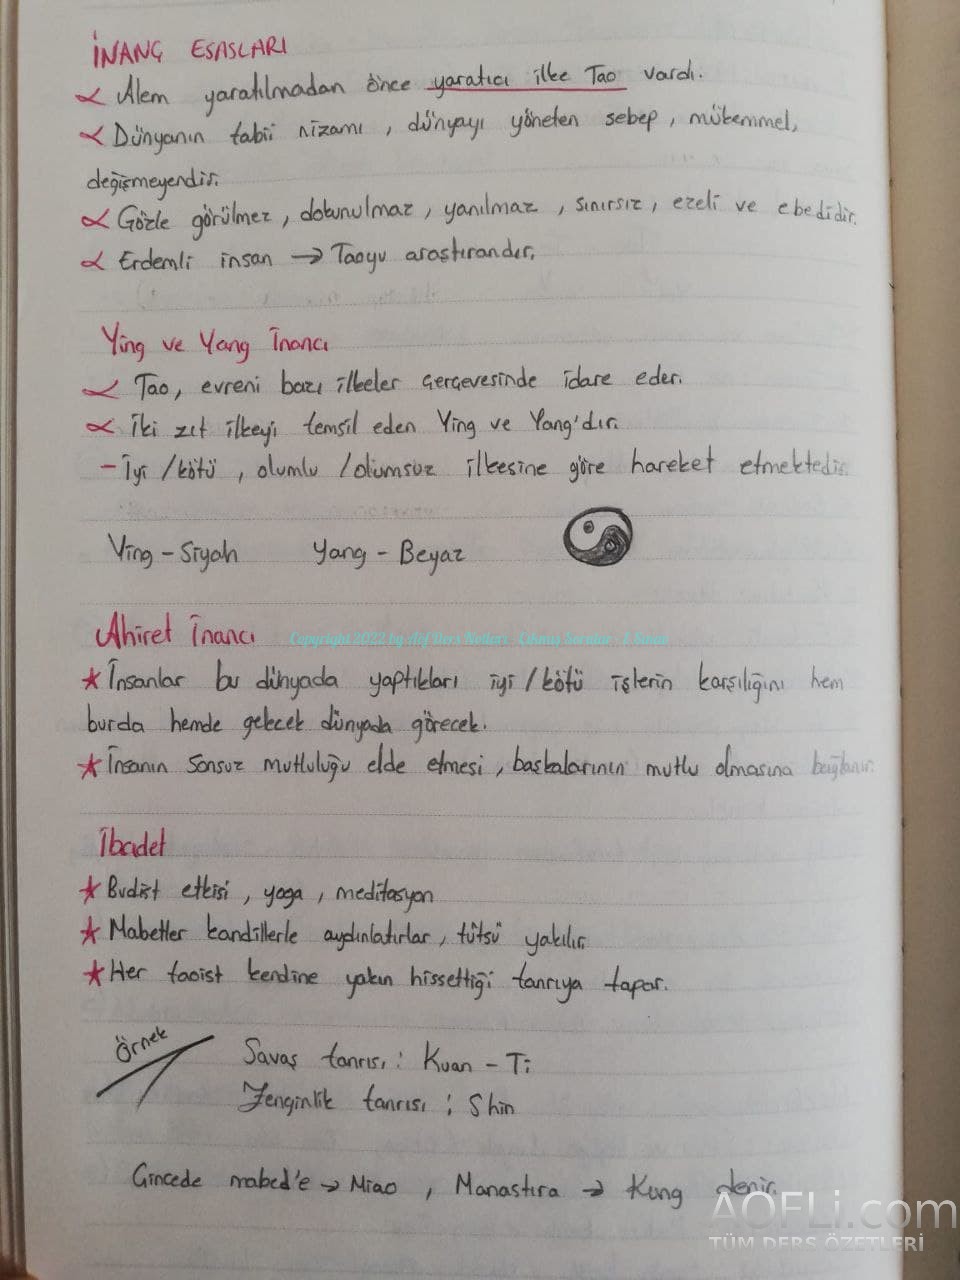 İNANÇ ESASLARI
Alem yaratılmadan önce yaratıcı ilke Tao vardı.
Dünyanın tabii nizamı, dünyayı yöneten sebep, mükemmel,
değişmeyendir.
Gözle görülmez, dokunulmaz, yanılmaz, sınırsız, ezeli ve ebedidir.
Erdemli insan → Taoyu araştırandır.
Ying ve Yang İnancı
Tao, evreni bazı ilkeler çerçevesinde idare eder.
İki zıt ilkeyi temsil eden Ying ve Yang'dır.
- İyi / kötü, olumlu / olumsuz ilkesine göre hareket etmektedir.
Ying - Siyah Yang - Beyaz
Ahiret İnancı
Copyright 2022 by Aöf Ders Notları - Çıkmış Sorular - E Sınav
★ İnsanlar bu dünyada yaptıkları iyi / kötü işlerin karşılığını hem
burda hemde gelecek dünyada görecek.
★ İnsanın sonsuz mutluluğu elde etmesi, başkalarının mutlu olmasına bağlanır.
İbadet
★ Budist etkisi, yoga, meditasyon
★ Mabetler kandillerle aydınlatırlar, tütsü yakılır
★ Her taoist kendine yakın hissettiği tanrıya tapar.
Örnek
Savaş tanrısı : Kuan - Ti
Zenginlik tanrısı : Shin
Çincede mabed'e → Miao, Manastıra → Kung denir.
AOFLi.com
TÜM DERS ÖZETLERİ